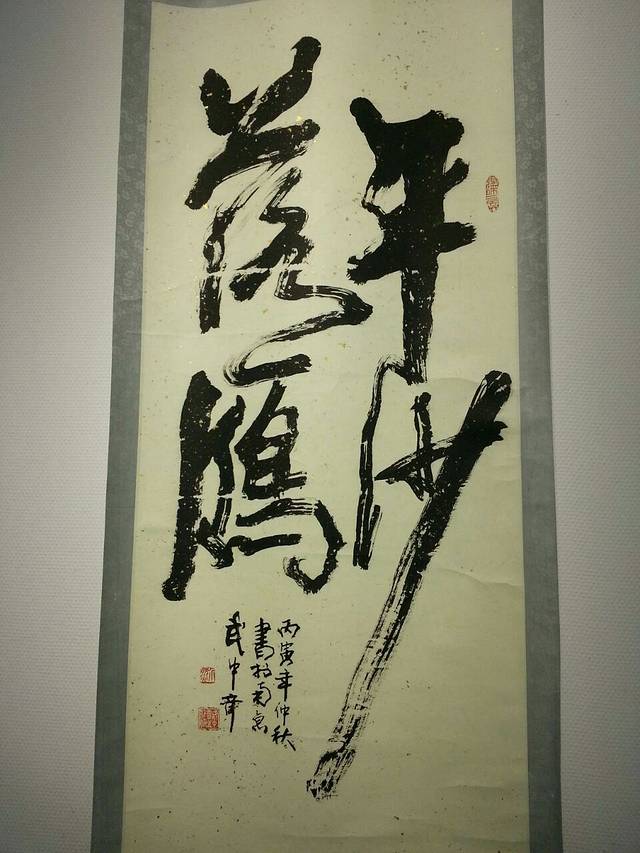 平沙
落雁
丙寅年仲秋
書於南京
武中奇